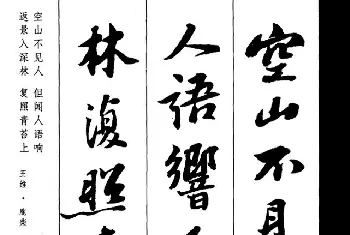 空山不見
人語響
林復照
空山不见人 但闻人语响
返景入深林 复照青苔上
王维·鹿柴